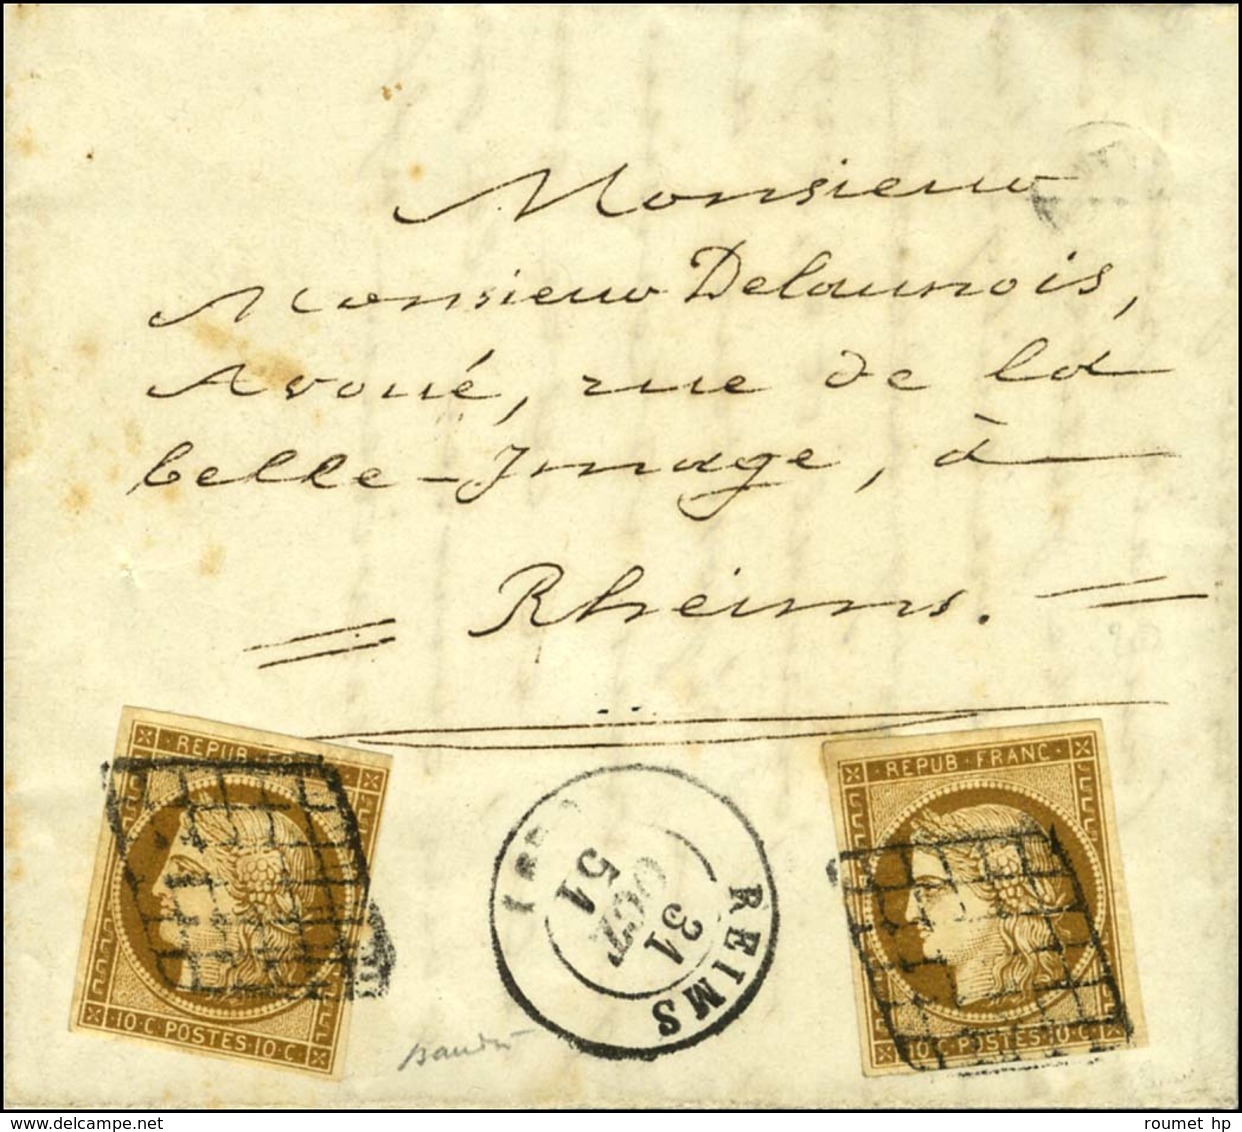 Monsieur
Monsieur Delaunois,
Avoué, rue de la
belle-Image, à
Rheims.
REPUB
10·C·POSTES·10·C·
REIMS
31
OCT.
51
(49)
· REPUB · FRANC ·
10·C·POSTES·10·C·
roumet hp